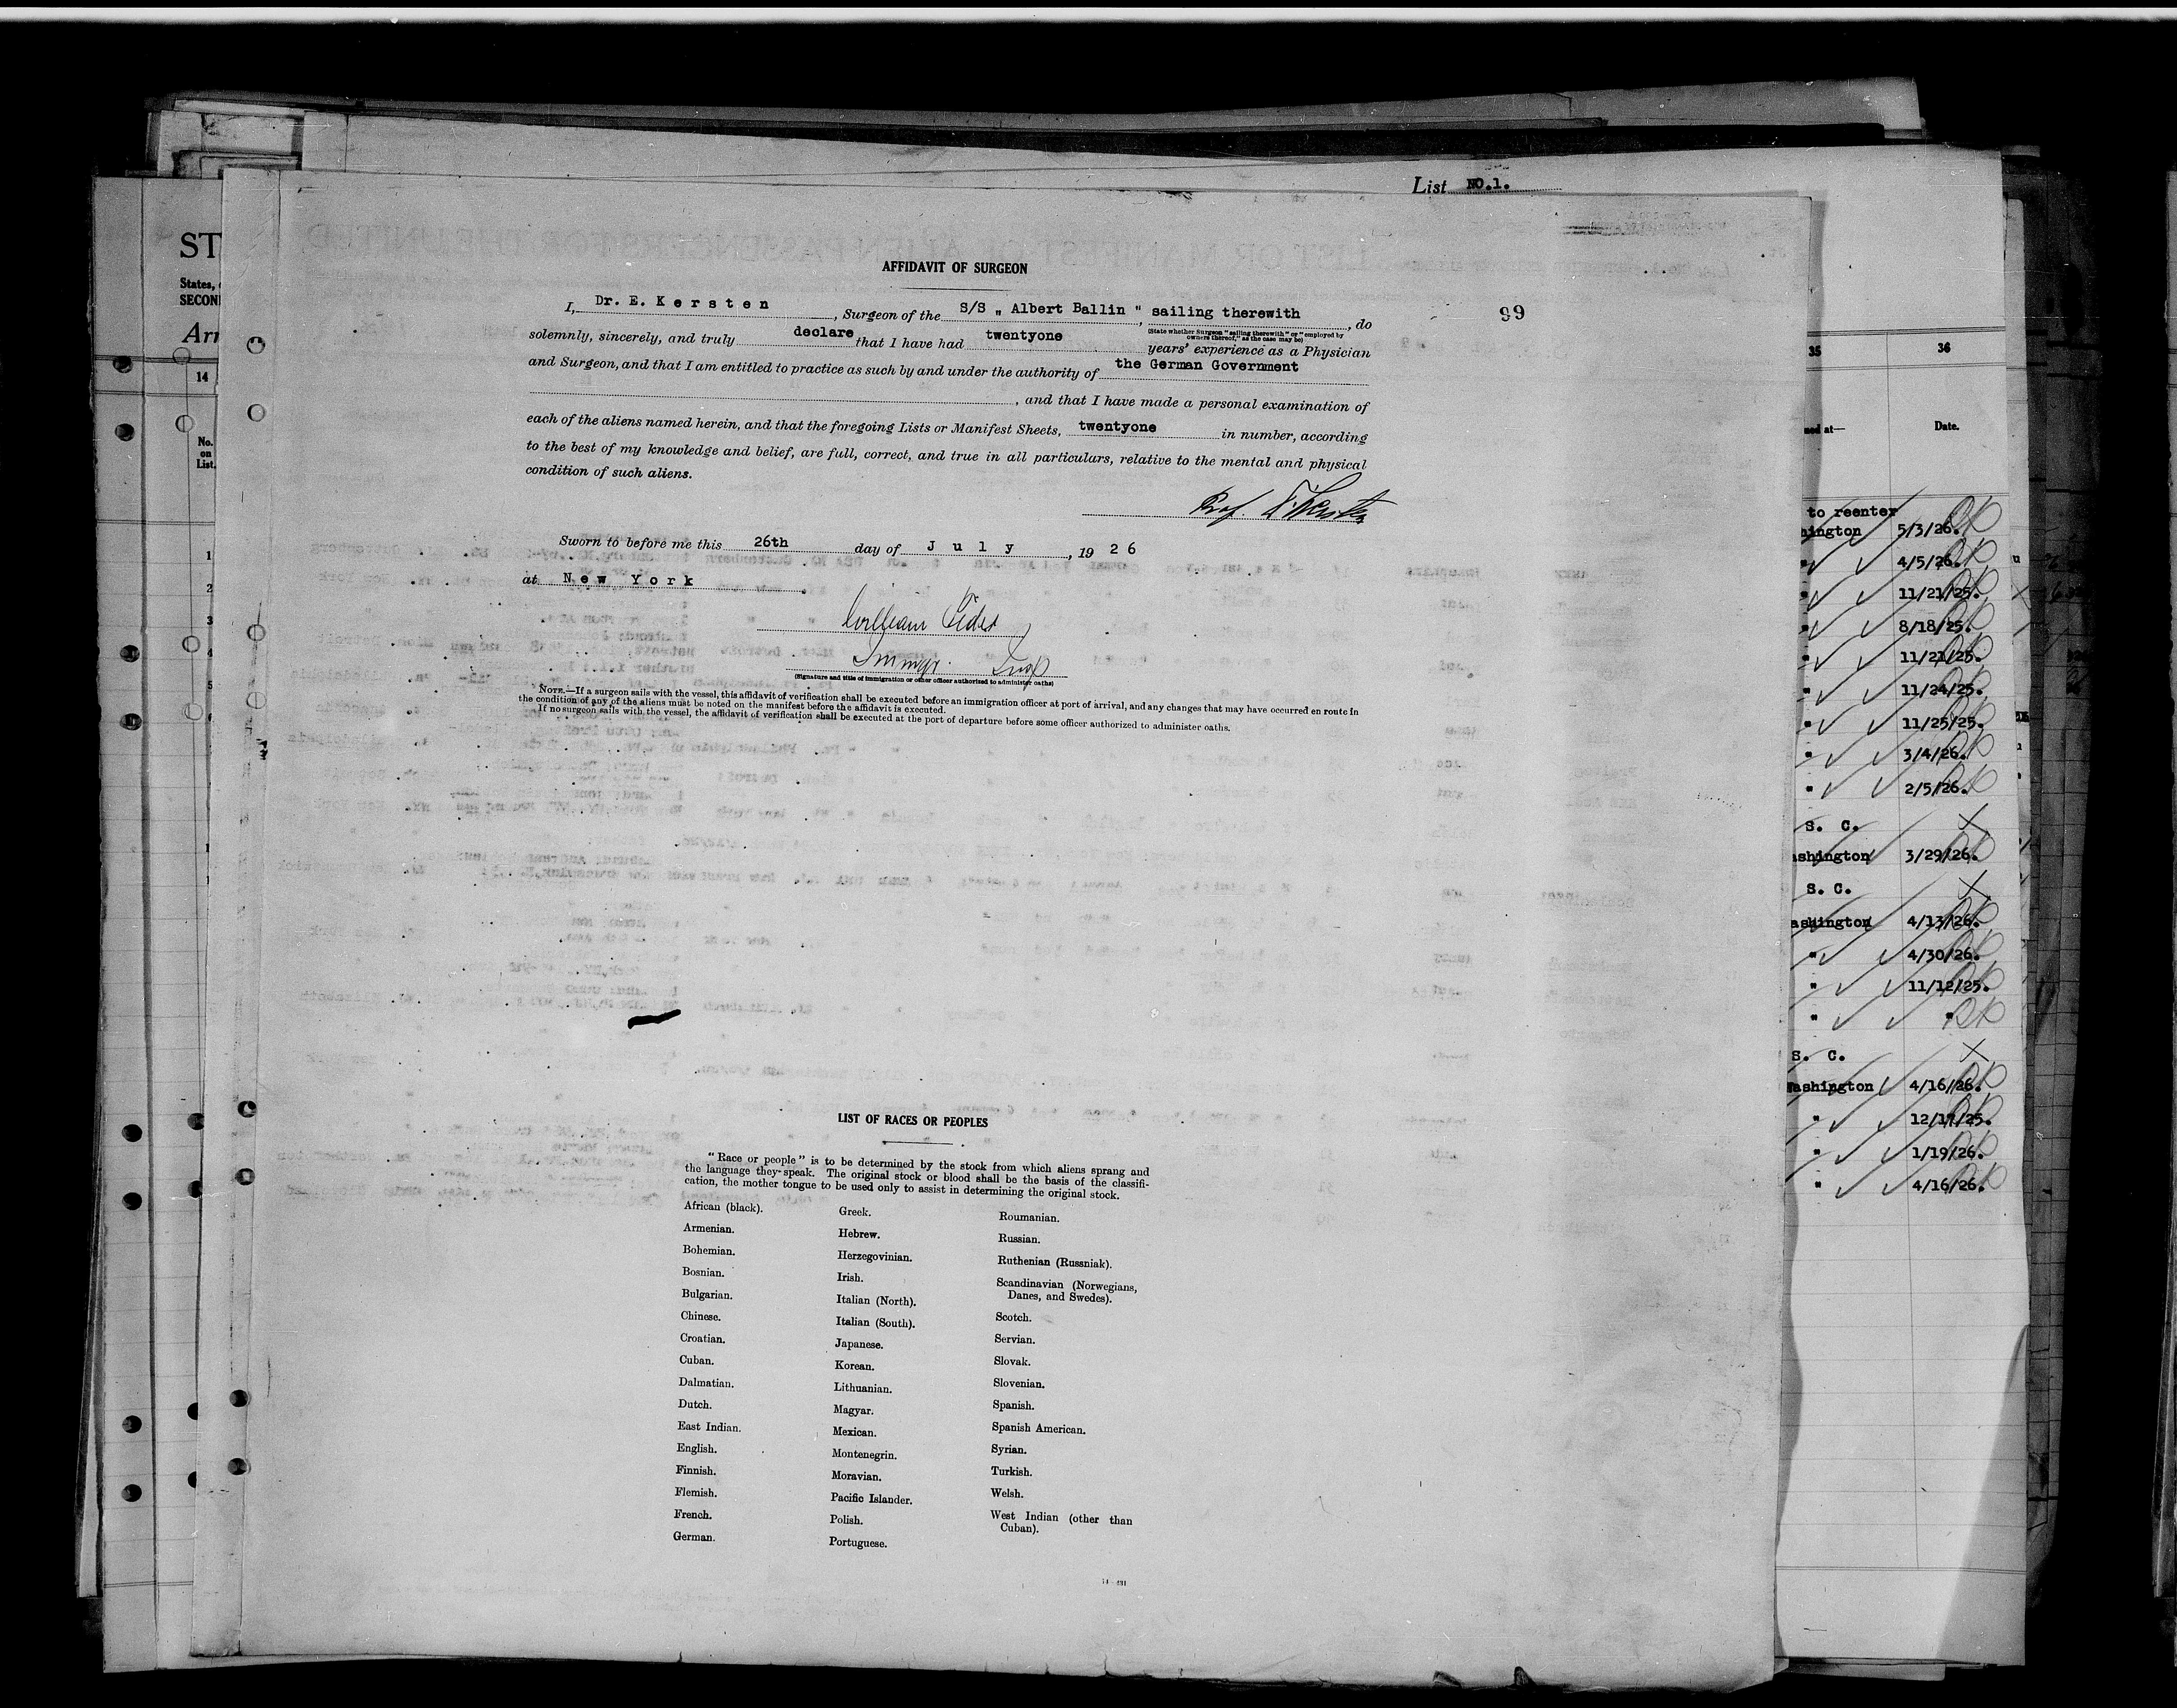 List NO.1.
AFFIDAVIT OF SURGEON
99
I, Dr. E. Kersten, Surgeon of the S/S „ Albert Ballin " sailing therewith, do
(State whether Surgeon "sailing therewith" or "employed by
owners thereof," as the case may be)
solemnly, sincerely, and truly declare that I have had twentyone years' experience as a Physician
and Surgeon, and that I am entitled to practice as such by and under the authority of the German Government
, and that I have made a personal examination of
each of the aliens named herein, and that the foregoing Lists or Manifest Sheets, twentyone in number, according
to the best of my knowledge and belief, are full, correct, and true in all particulars, relative to the mental and physical
condition of such aliens.
Prof. Kersten
Sworn to before me this 26th day of July, 1926
at New York
William
Immgr. Insp
(Signature and title of immigration or other officer authorized to administer oaths)
NOTE.—If a surgeon sails with the vessel, this affidavit of verification shall be executed before an immigration officer at port of arrival, and any changes that may have occurred en route in
the condition of any of the aliens must be noted on the manifest before the affidavit is executed.
If no surgeon sails with the vessel, the affidavit of verification shall be executed at the port of departure before some officer authorized to administer oaths.
LIST OF RACES OR PEOPLES
"Race or people" is to be determined by the stock from which aliens sprang and
the language they speak. The original stock or blood shall be the basis of the classifi-
cation, the mother tongue to be used only to assist in determining the original stock.
African (black).
Armenian.
Bohemian.
Bosnian.
Bulgarian.
Chinese.
Croatian.
Cuban.
Dalmatian.
Dutch.
East Indian.
English.
Finnish.
Flemish.
French.
German.
Greek.
Hebrew.
Herzegovinian.
Irish.
Italian (North).
Italian (South).
Japanese.
Korean.
Lithuanian.
Magyar.
Mexican.
Montenegrin.
Moravian.
Pacific Islander.
Polish.
Portuguese.
Roumanian.
Russian.
Ruthenian (Russniak).
Scandinavian (Norwegians,
Danes, and Swedes).
Scotch.
Servian.
Slovak.
Slovenian.
Spanish.
Spanish American.
Syrian.
Turkish.
Welsh.
West Indian (other than
Cuban).
ST
States,
SECON
Arr
14
No.
on
List.
1
2
3
4
5
35
36
ned at—
Date.
to reenter
hington 5/3/26.
" 4/5/26.
" 11/21/25.
" 8/18/25.
" 11/21/25.
" 11/24/25.
" 11/25/25.
" 3/4/26.
" 2/5/26.
S. C.
ashington 3/29/26.
S. C.
ashington 4/13/26.
" 4/30/26.
" 11/12/25.
" "
S. C.
Washington 4/16/26.
" 12/17/25.
" 1/19/26.
" 4/16/26.